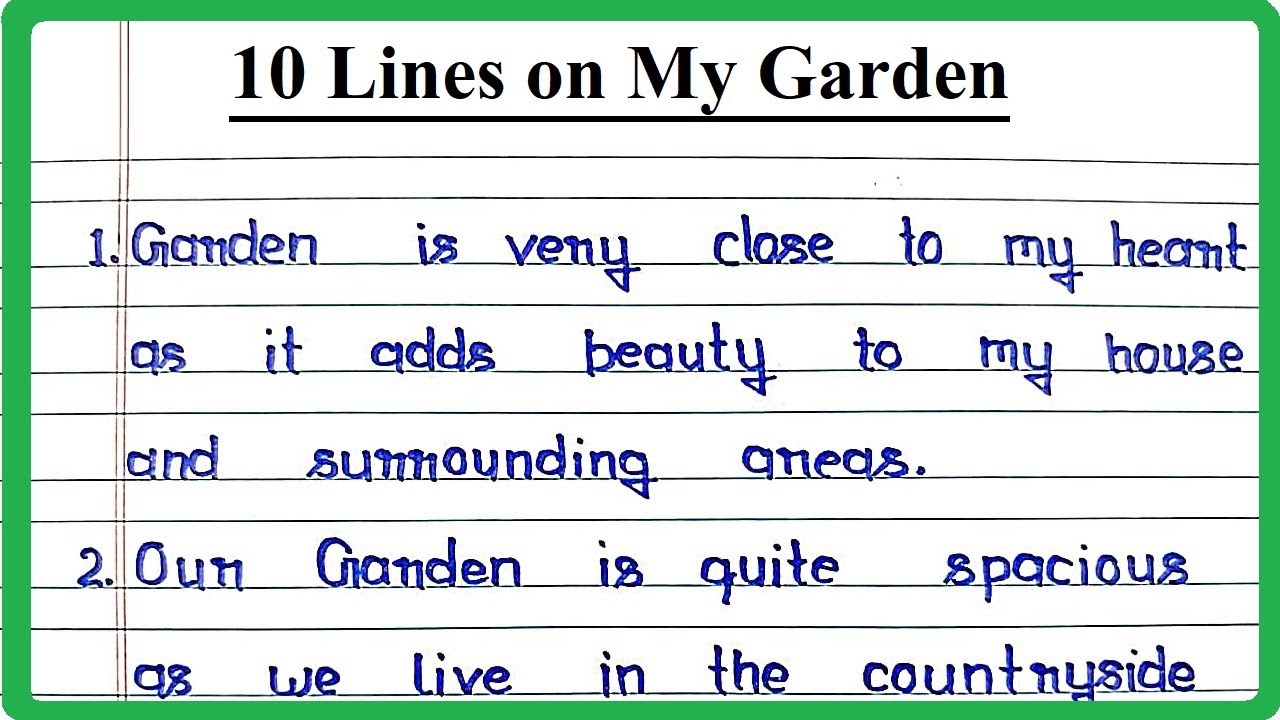 10 Lines on My Garden
1. Garden is very close to my heart
as it adds beauty to my house
and surrounding areas.
2. Our Garden is quite spacious
as we live in the countryside